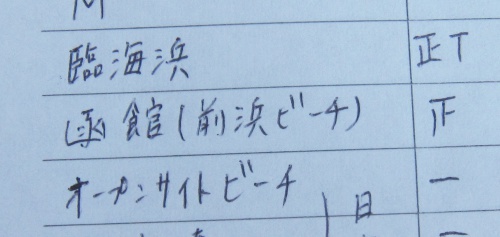 臨海浜 正丅
函館(前浜ビーチ) 正
オープンサイトビーチ 一